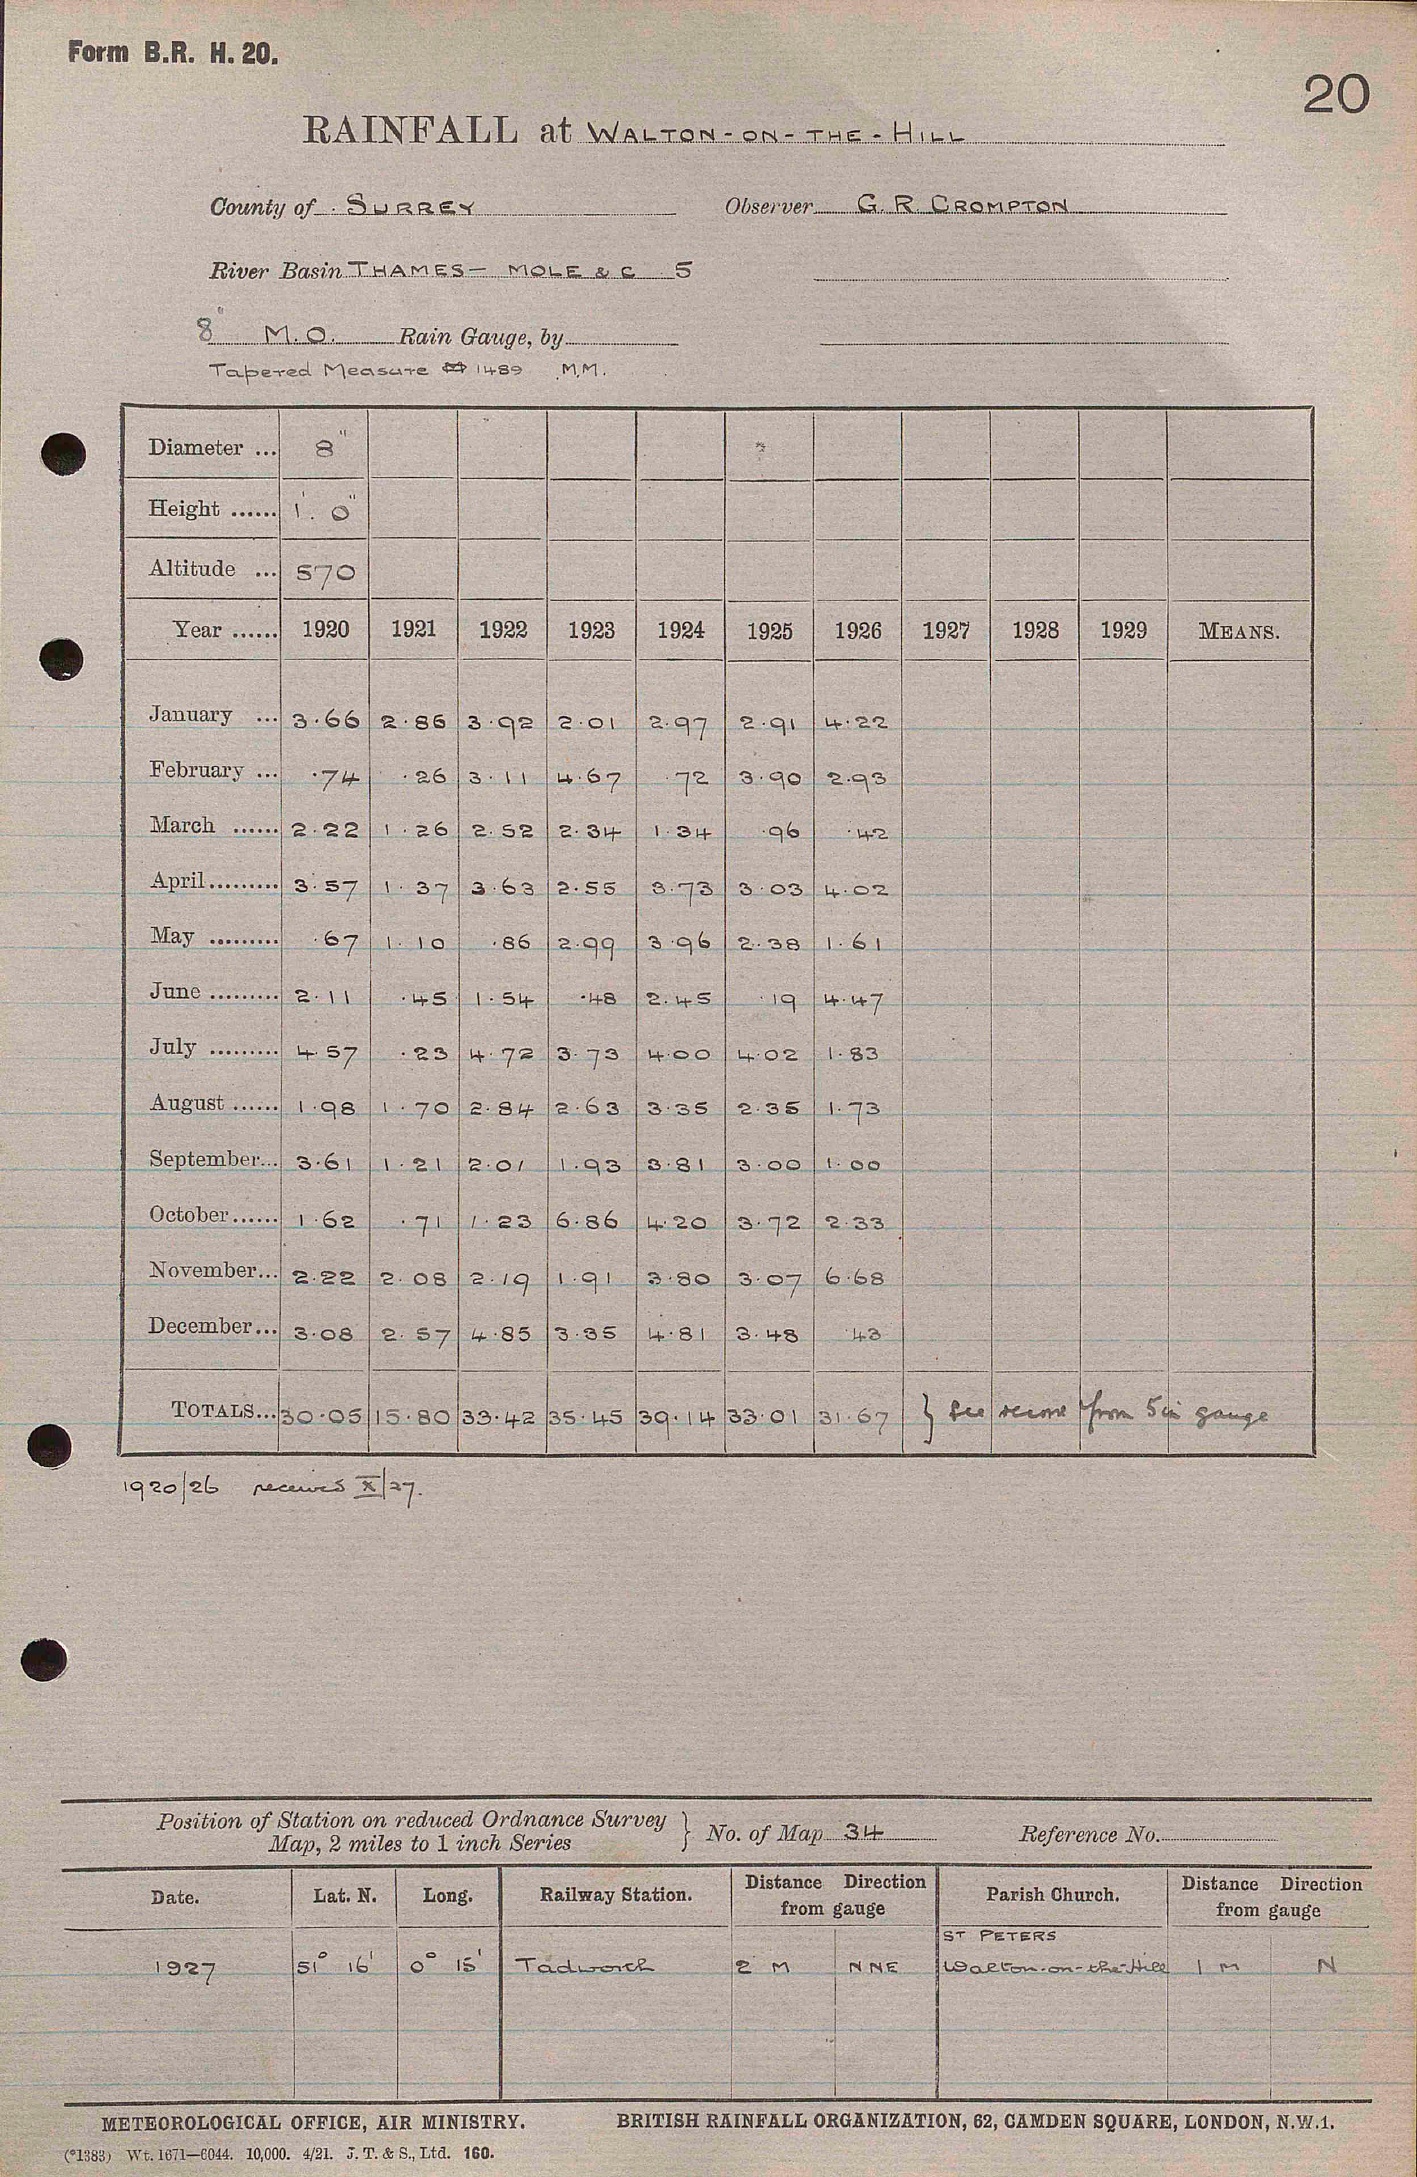 Form B.R. H. 20.
20
RAINFALL at WALTON-ON-THE-HILL
County of SURREY Observer G. R. CROMPTON
River Basin THAMES— MOLE & C 5
8" M.O. Rain Gauge, by
Tapered Measure 1489 M.M.
Diameter ... 8"
Height ...... 1'. 0"
Altitude ... 570
Year ...... 1920 1921 1922 1923 1924 1925 1926 1927 1928 1929 MEANS.
January ... 3.66 2.86 3.92 2.01 2.97 2.91 4.22
February ... .74 .26 3.11 4.67 .72 3.90 2.93
March ...... 2.22 1.26 2.52 2.34 1.34 .96 .42
April......... 3.57 1.37 3.63 2.55 3.73 3.03 4.02
May ......... .67 1.10 .86 2.99 3.96 2.38 1.61
June ......... 2.11 .45 1.54 .48 2.45 .19 4.47
July ......... 4.57 .23 4.72 3.73 4.00 4.02 1.83
August ...... 1.98 1.70 2.84 2.63 3.35 2.35 1.73
September... 3.61 1.21 2.01 1.93 3.81 3.00 1.00
October...... 1.62 .71 1.23 6.86 4.20 3.72 2.33
November... 2.22 2.08 2.19 1.91 3.80 3.07 6.68
December... 3.08 2.57 4.85 3.35 4.81 3.48 .43
TOTALS... 30.05 15.80 33.42 35.45 39.14 33.01 31.67 } see record from 5 in gauge
1920/26 received X/27.
Position of Station on reduced Ordnance Survey
Map, 2 miles to 1 inch Series } No. of Map 34 Reference No.
Date. Lat. N. Long. Railway Station. Distance Direction from gauge Parish Church. Distance Direction from gauge
ST PETERS
1927 51° 16' 0° 15' Tadworth 2 M NNE Walton-on-the-Hill 1 M N
METEOROLOGICAL OFFICE, AIR MINISTRY. BRITISH RAINFALL ORGANIZATION, 62, CAMDEN SQUARE, LONDON, N.W.1.
(*1383) Wt. 1671—6044. 10,000. 4/21. J. T. & S., Ltd. 160.